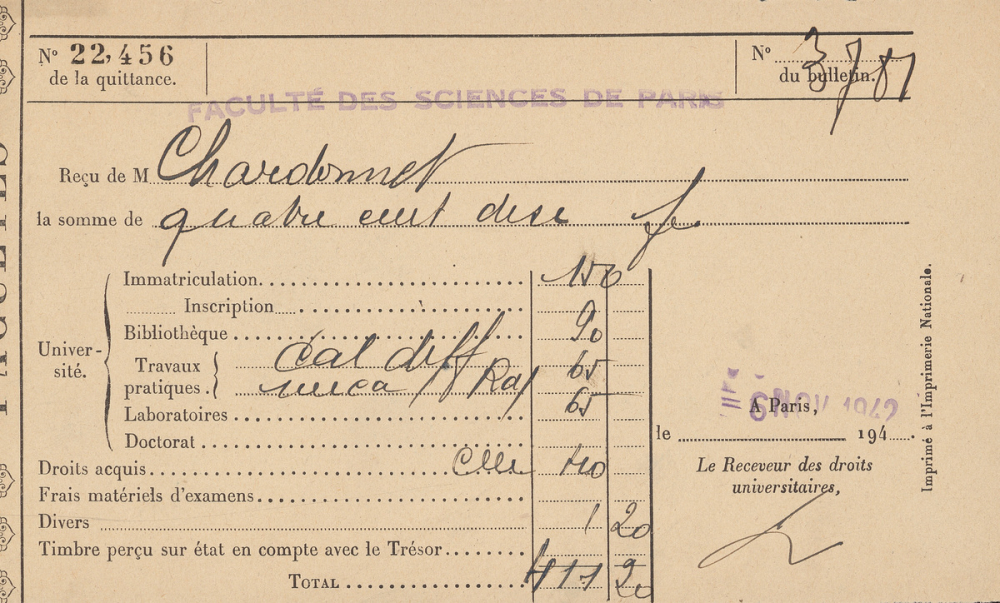 Nº 22,456
de la quittance.
Nº 3781
du bulletin.
FACULTÉ DES SCIENCES DE PARIS
Reçu de M Chardonnet
la somme de quatre cent dix f
Immatriculation 150
Inscription
Bibliothèque 90
Univer-
sité.
Travaux
pratiques. cal diff 65
meca Rat 65
Laboratoires
Doctorat
Droits acquis 40
Frais matériels d'examens
Divers 1 20
Timbre perçu sur état en compte avec le Trésor
TOTAL 411 20
6 NOV 1942
A Paris,
le 194
Le Receveur des droits
universitaires,
Imprimé à l'Imprimerie Nationale.